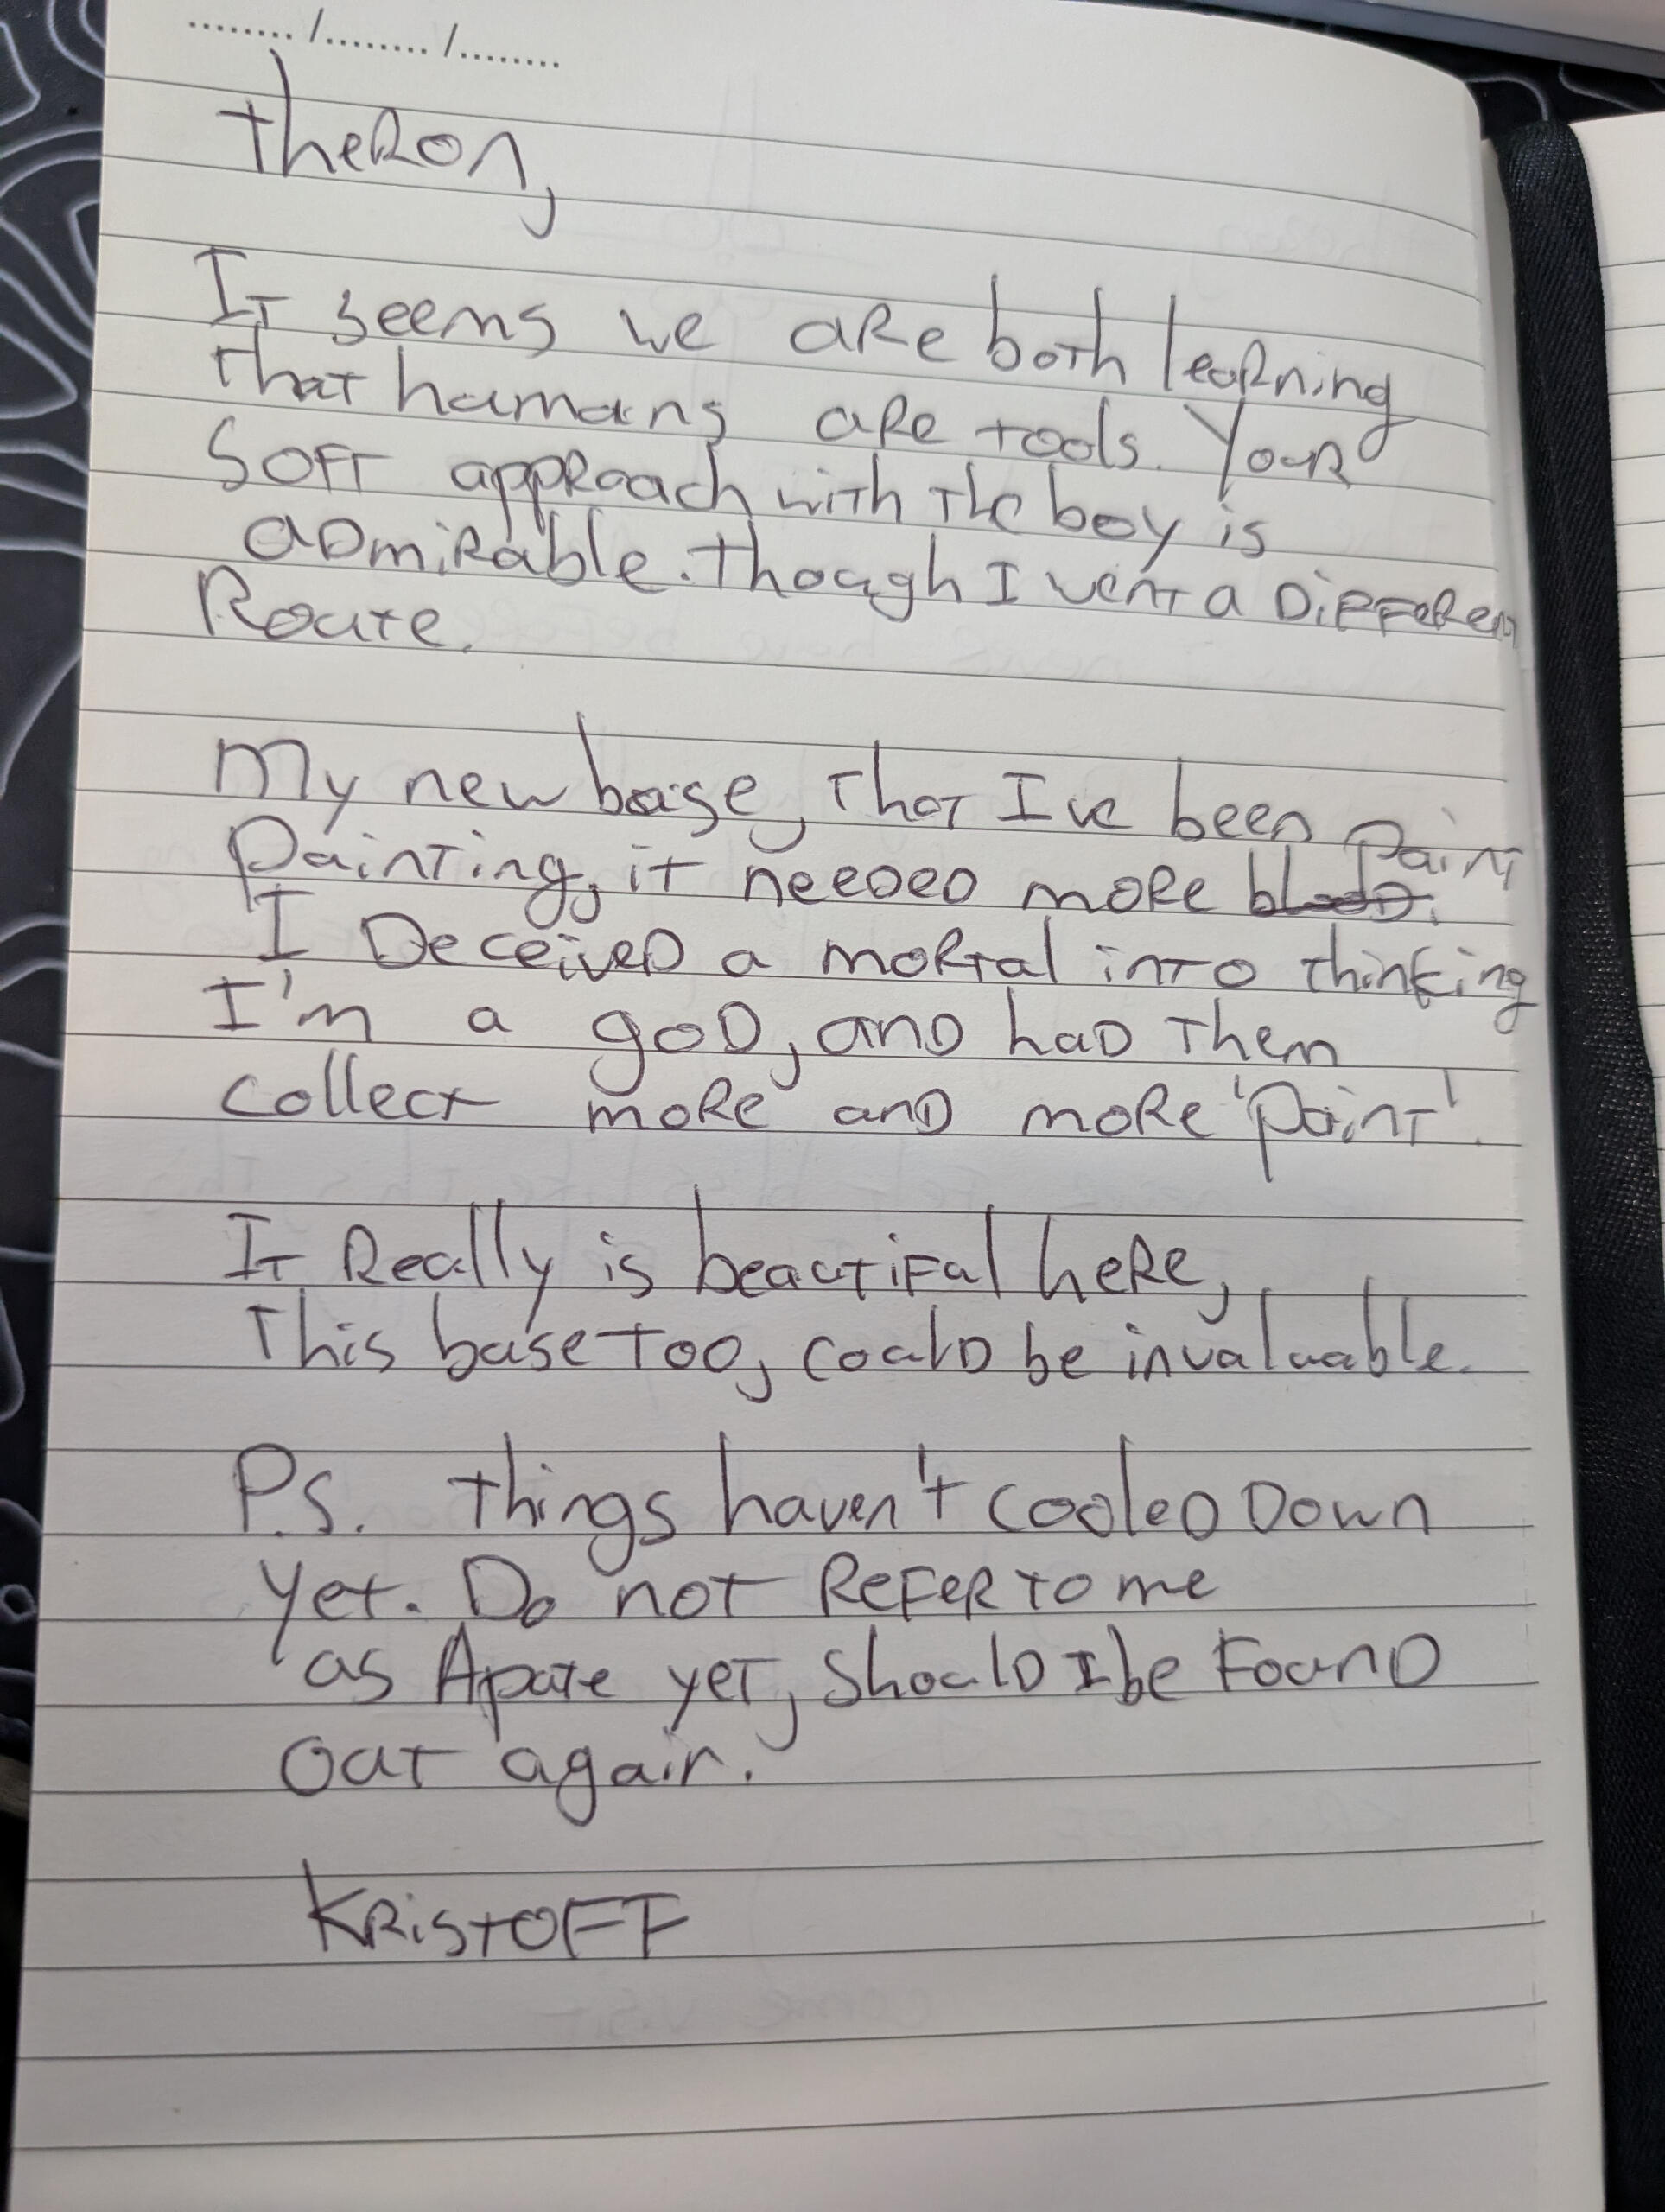 ......../......../........
Theron,
It seems we are both learning
that humans are tools. Your
soft approach with the boy is
admirable. Though I went a different
Route.
My new base, that I've been
painting, it needed more blood. paint
I Deceived a mortal into thinking
I'm a god, and had them
collect more and more 'paint'.
It Really is beautiful here,
This base too, could be invaluable.
P.S. Things haven't cooled down
yet. Do not refer to me
as Apate yet, should I be found
out again.
Kristoff